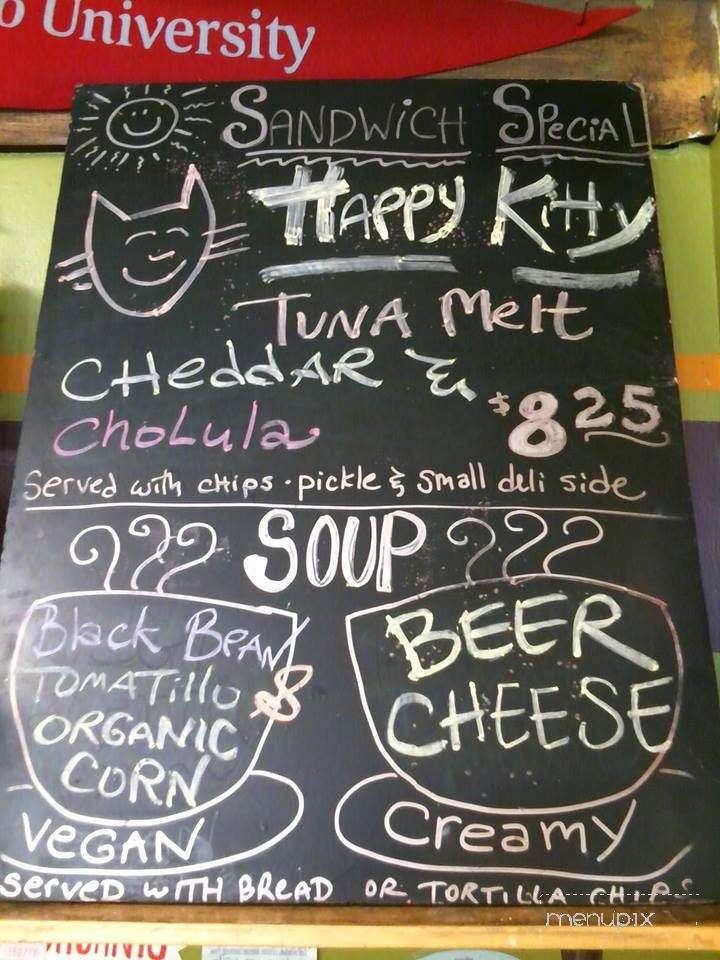 o University
SANDWICH SPECIAL
HAPPY KITTY
TUNA Melt
CHeddAR &
CHoLula
$8 25
Served with chips · pickle & small deli side
SOUP
Black BEAN
TOMATillo &
ORGANIC
CORN
VEGAN
BEER
CHEESE
Creamy
SERVED WITH BREAD OR TORTILLA CHIPS
menupix